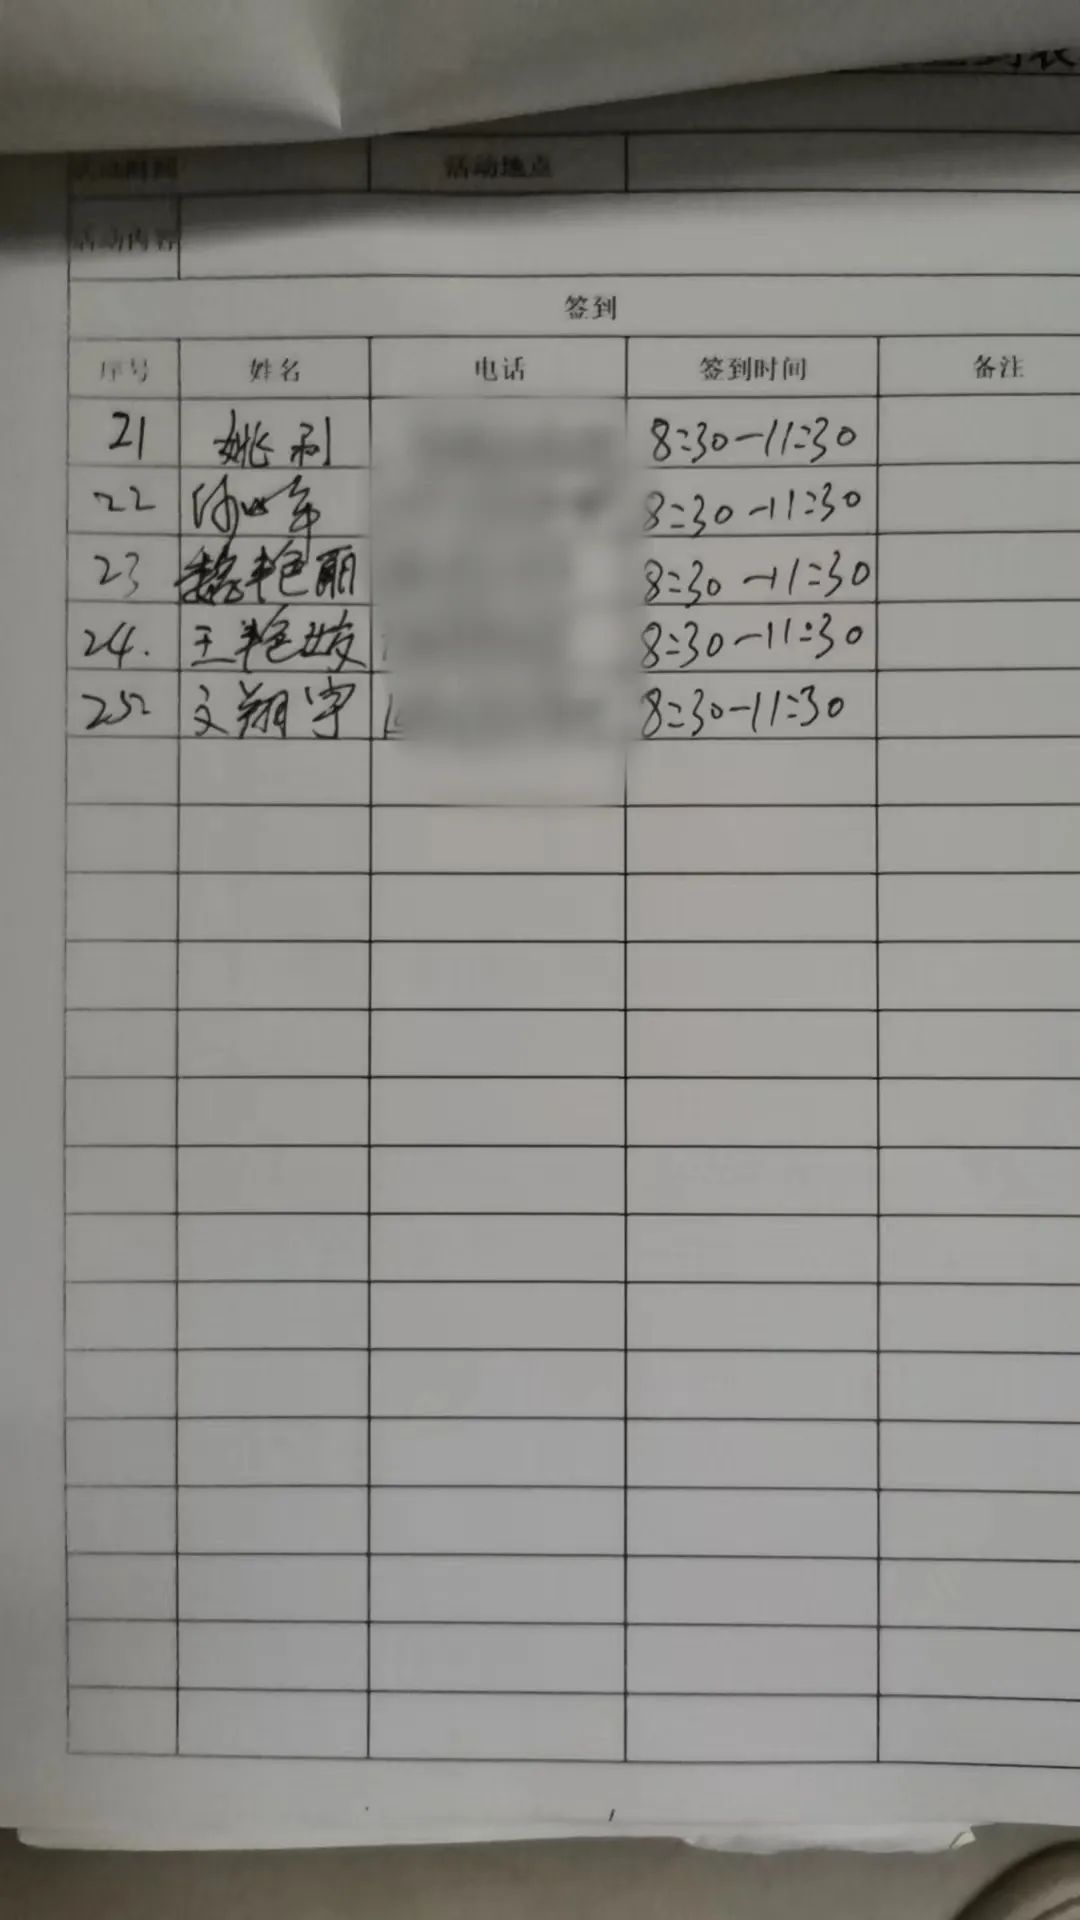 活动地点
活动内容
签到
序号 姓名 电话 签到时间 备注
21 姚利 8:30-11:30
22 8:30-11:30
23 魏艳丽 8:30-11:30
24. 王艳 8:30-11:30
25 文翔宇 8:30-11:30